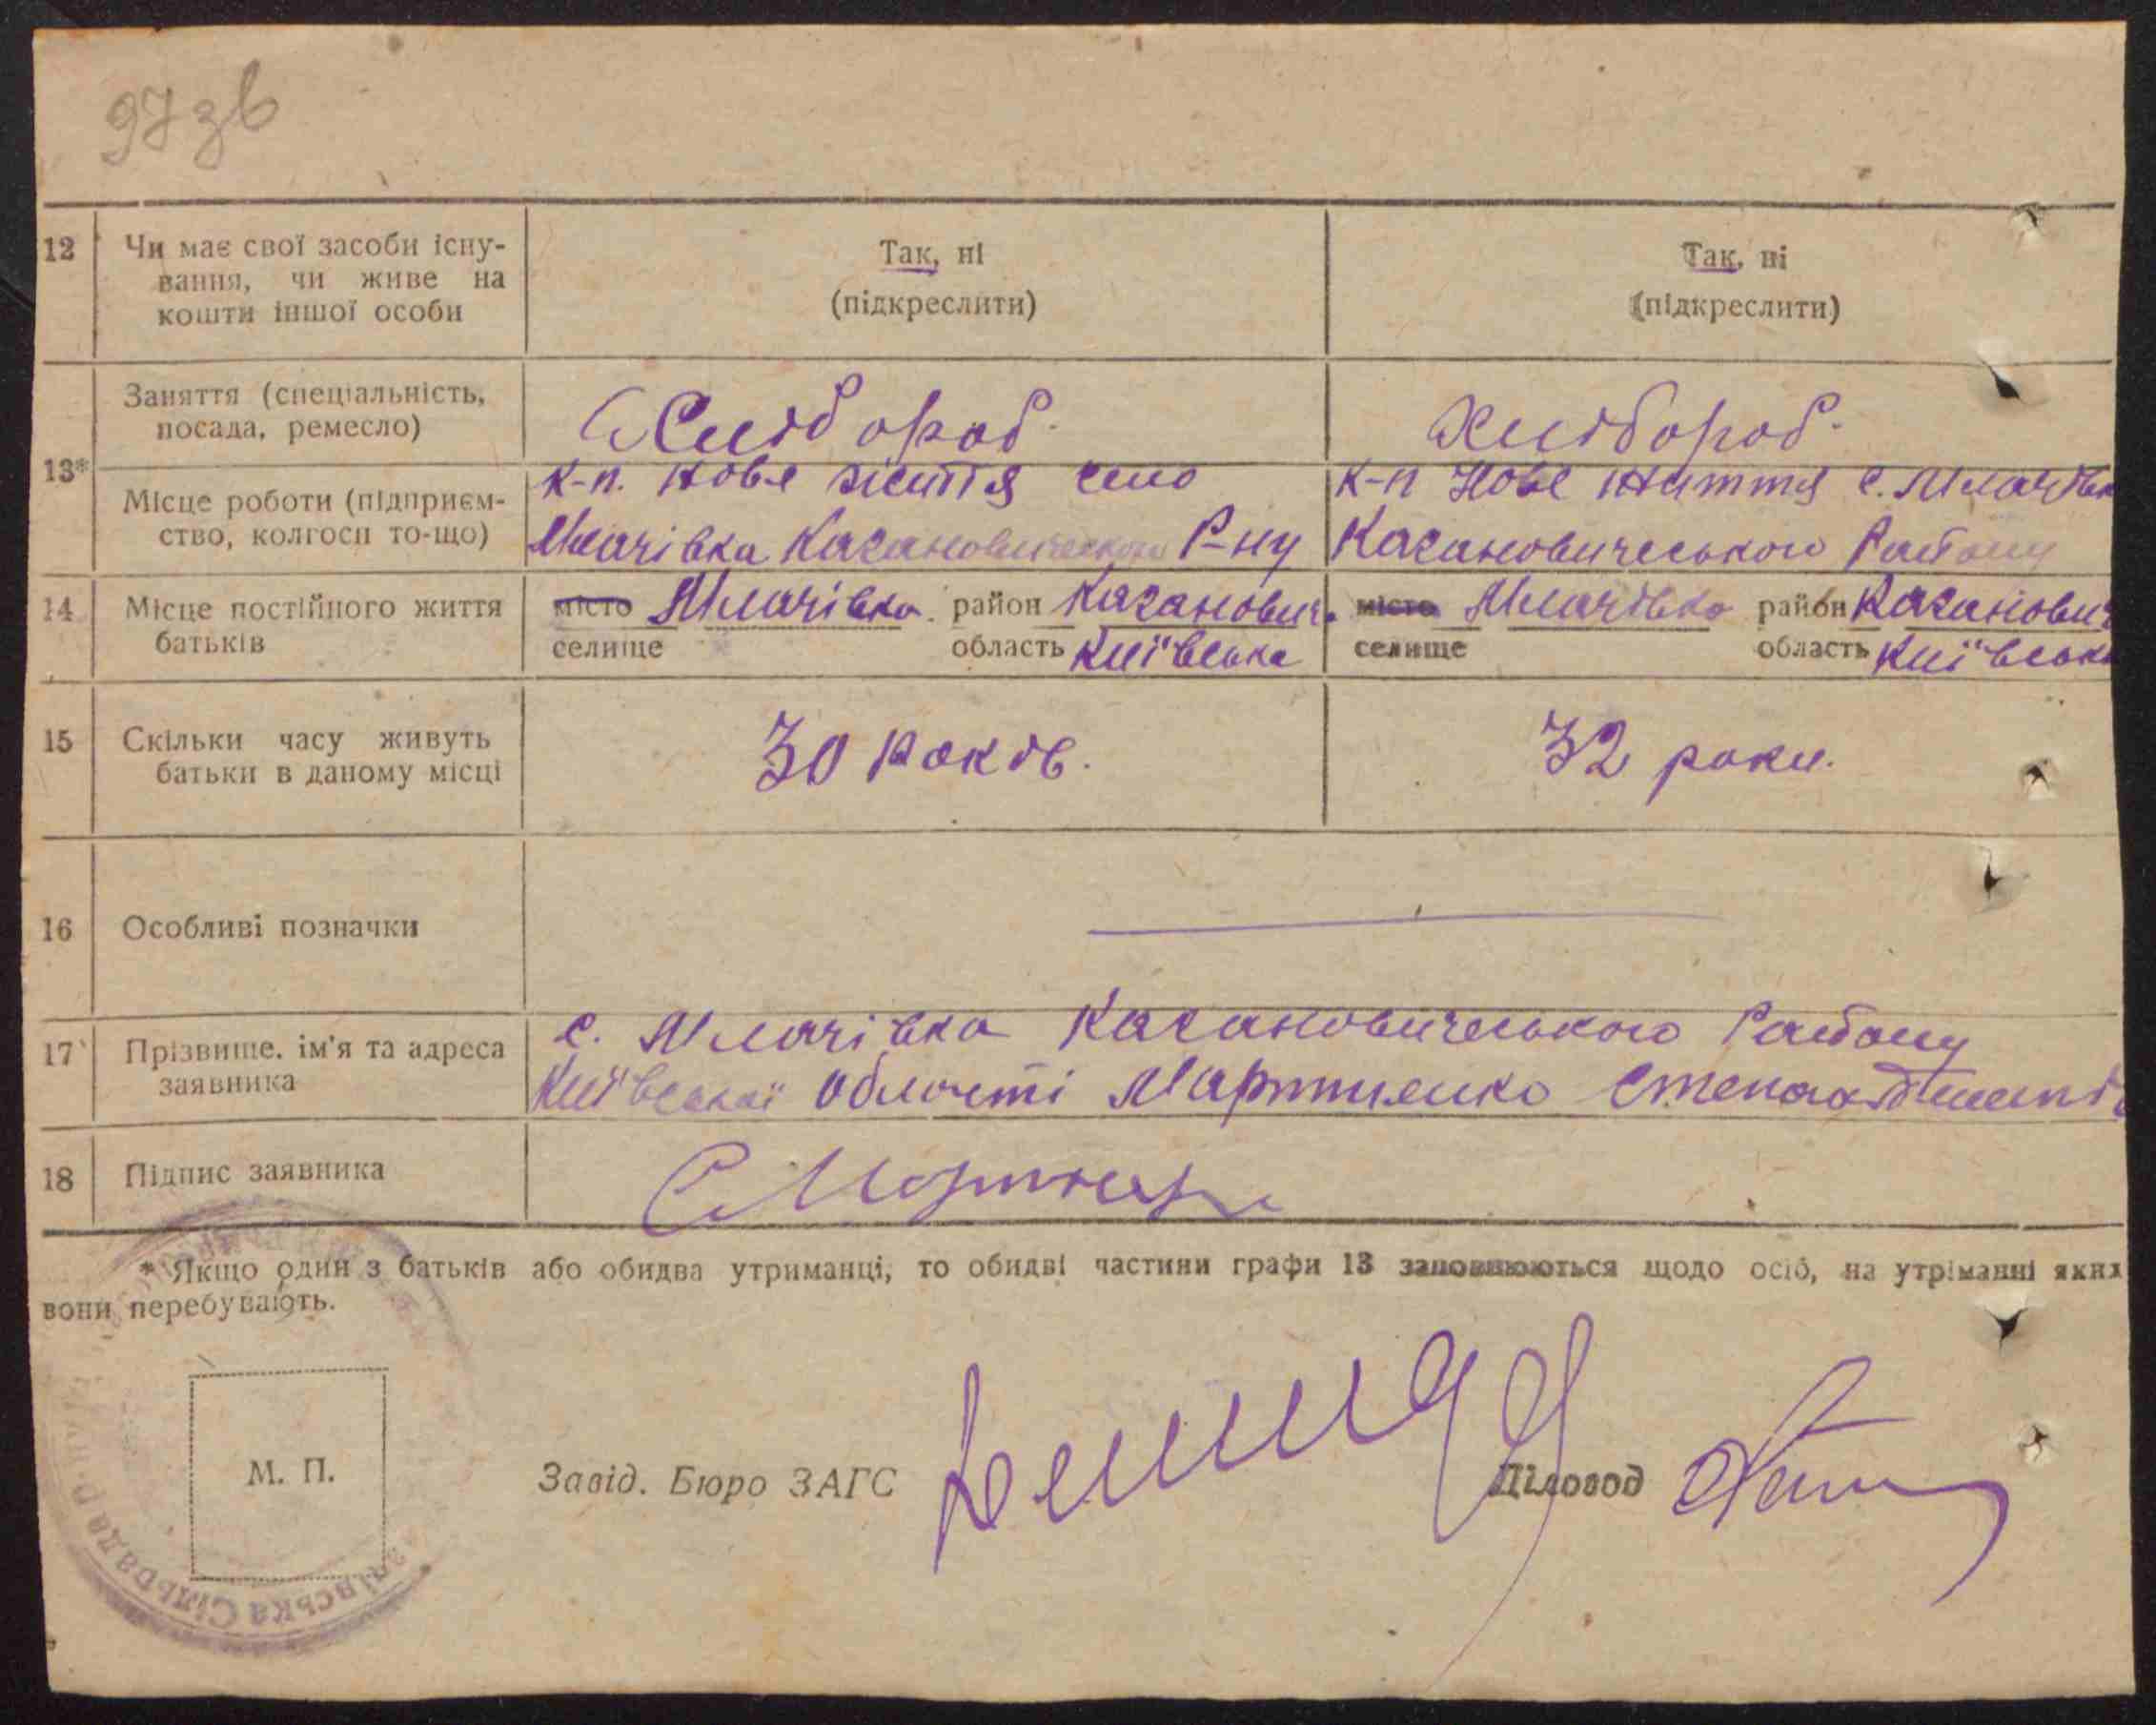 97 зв
12 Чи має свої засоби існу- Так, ні Так, ні
вання, чи живе на (підкреслити) (підкреслити)
кошти іншої особи
Заняття (спеціальність, Хлібороб. Хлібороб.
посада, ремесло)
13*
Місце роботи (підприєм- к-п. Нове життя село к-п Нове життя с. Млачівка
ство, колгосп то-що) Млачівка Кагановическою Р-ну Кагановичеського Району
14 Місце постійного життя місто Млачівка. район Каганович. місто Млачівка район Каганович
батьків селище область Київська селище область Київська
15 Скільки часу живуть 30 років. 32 роки.
батьки в даному місці
16 Особливі позначки
17 Прізвище. ім'я та адреса с. Млачівка Кагановичеського Району
заявника Київської Області Мартиненко Степан
18 Підпис заявника
* Якщо один з батьків або обидва утриманці, то обидві частини графи 13 заповнюються щодо осіб, на утріманні яких
вони перебувають.
М. П. Завід. Бюро ЗАГС Діловод
Сільрада